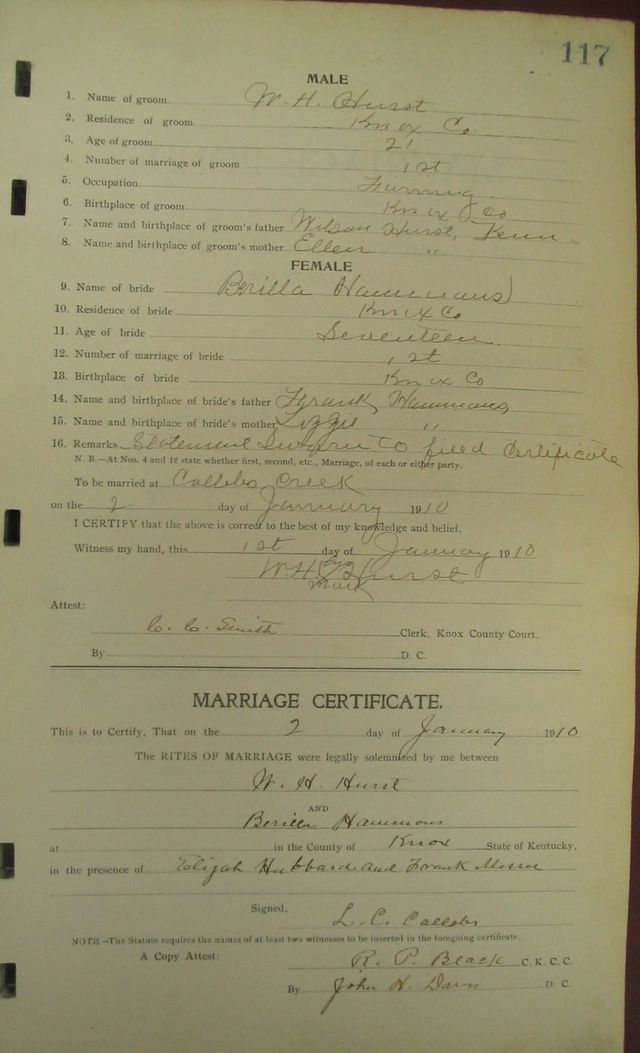 117
MALE
1. Name of groom W. H. Hurst
2. Residence of groom Knox Co
3. Age of groom 21
4. Number of marriage of groom 1st
5. Occupation Farming
6. Birthplace of groom Knox Co
7. Name and birthplace of groom's father Wilson Hurst, Kenn
8. Name and birthplace of groom's mother Ellen "
FEMALE
9. Name of bride Berilla Hammons
10. Residence of bride Knox Co
11. Age of bride Seventeen
12. Number of marriage of bride 1st
13. Birthplace of bride Knox Co
14. Name and birthplace of bride's father Frank Hammons
15. Name and birthplace of bride's mother Lizzie "
16. Remarks Statement Sworn to filed Certificate
N. B.—At Nos. 4 and 12 state whether first, second, etc., Marriage, of each or either party.
To be married at Callebs Creek
on the 2 day of January 1910
I CERTIFY that the above is correct to the best of my knowledge and belief.
Witness my hand, this 1st day of January 1910
W. H. his Hurst
mark
Attest:
C. C. Smith Clerk, Knox County Court.
By D. C.
MARRIAGE CERTIFICATE.
This is to Certify, That on the 2 day of January 1910
The RITES OF MARRIAGE were legally solemnized by me between
W. H. Hurst
AND
Berilla Hammons
at in the County of Knox State of Kentucky,
in the presence of Elijah Hubbard and Frank
Signed,
L. C. Callebs
NOTE—The Statute requires the names of at least two witnesses to be inserted in the foregoing certificate.
A Copy Attest: R. P. Black C. K. C. C.
By John H. Davis D. C.